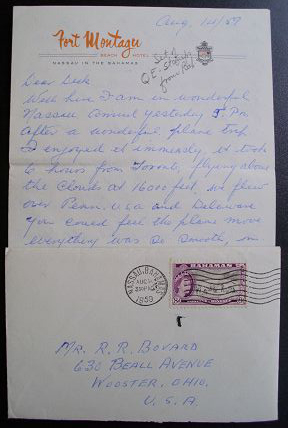 Aug. 14/59
Fort Montagu
BEACH HOTEL
NASSAU IN THE BAHAMAS
Set of
Q E. Stamps
from
Dear
Well here I am in wonderful
Nassau arrived yesterday 5 Pm
after a wonderful plane trip
I enjoyed it immensly it took
6 hours from Toronto, flying above
the clouds at 16000 feet, we flew
over Penn. USA and Delaware
you could feel the plane move
everything was so smooth, in
NASSAU, BAHAMAS
AUG
1959
BAHAMAS
MR. R. R. BOVARD
630 BEALL AVENUE
WOOSTER, OHIO,
U. S. A.